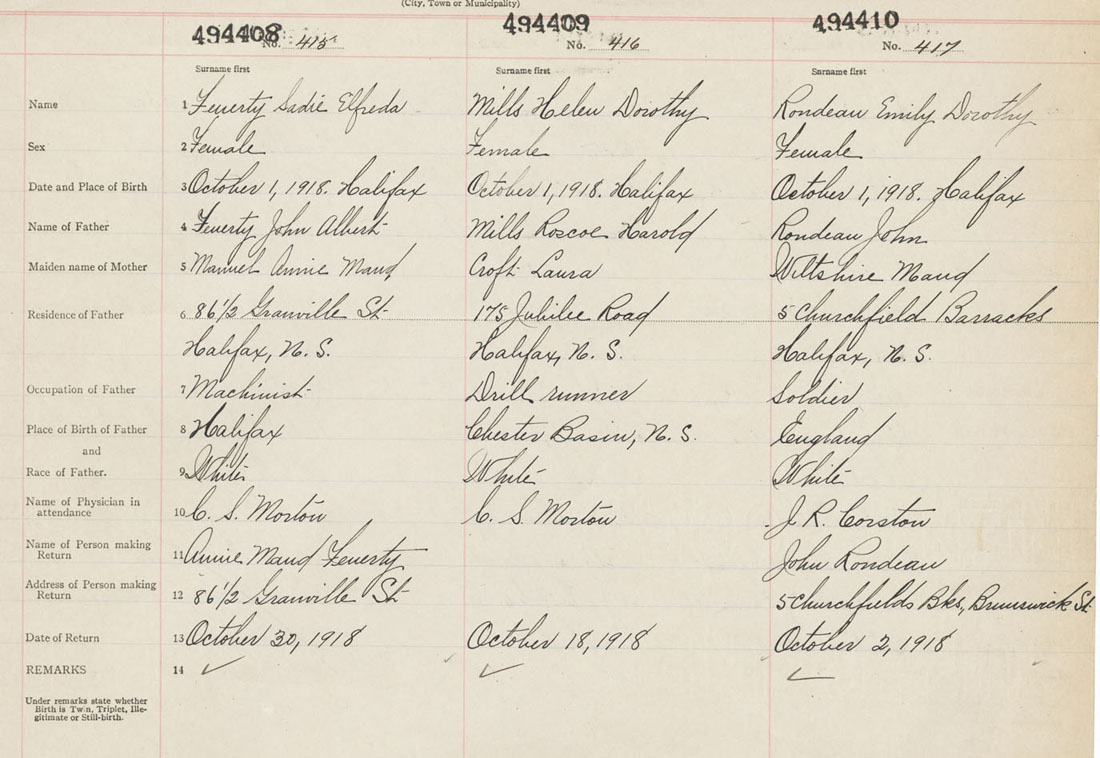 (City, Town or Municipality)
494408 494409 494410
No. 415 No. 416 No. 417
Surname first Surname first Surname first
Name 1 Feuerty Sadie Elfreda Mills Helen Dorothy Rondeau Emily Dorothy
Sex 2 Female Female Female
Date and Place of Birth 3 October 1, 1918. Halifax October 1, 1918. Halifax October 1, 1918. Halifax
Name of Father 4 Feuerty John Albert Mills Roscoe Harold Rondeau John
Maiden name of Mother 5 Manuel Annie Maud Croft Laura Wiltshire Maud
Residence of Father 6 86 1/2 Granville St. 175 Jubilee Road 5 Churchfield Barracks
Halifax, N. S. Halifax, N. S. Halifax, N. S.
Occupation of Father 7 Machinist Drill runner Soldier
Place of Birth of Father 8 Halifax Chester Basin, N. S. England
and
Race of Father. 9 White White White
Name of Physician in
attendance 10 C. S. Morton C. S. Morton J. R. Corston
Name of Person making
Return 11 Annie Maud Feuerty John Rondeau
Address of Person making
Return 12 86 1/2 Granville St. 5 Churchfields Bks., Brunswick St.
Date of Return 13 October 30, 1918 October 18, 1918 October 2, 1918
REMARKS 14 ✓ ✓ ✓
Under remarks state whether
Birth is Twin, Triplet, Ille-
gitimate or Still-birth.